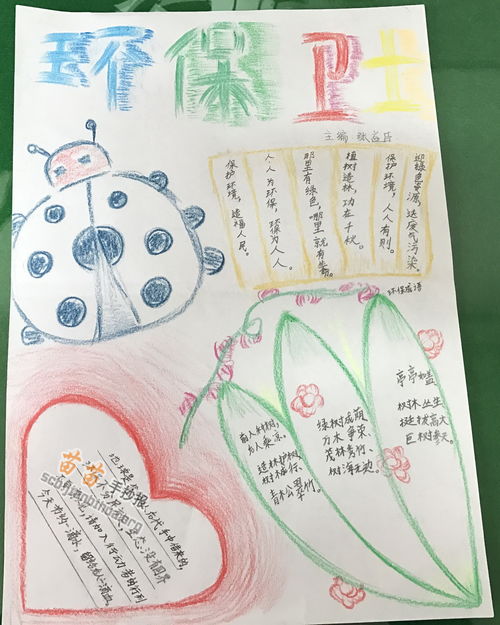 环保卫士
主编
迎绿色能源，送废气污染。
保护环境，人人有则。
植树造林，功在千秋。
那里有绿色，哪里就有生命。
人人为环保，环保为人人。
保护环境，造福人民。
环保标语
亭亭如盖
树木丛生
挺拔高大
巨树参天。
绿树成荫
万木争荣
茂林秀竹、
树海无边
前人种树，
后人乘凉。
造林护树
树木成行、
青松翠竹。
苗苗手抄报
今天节约一滴水，留给后人一滴血